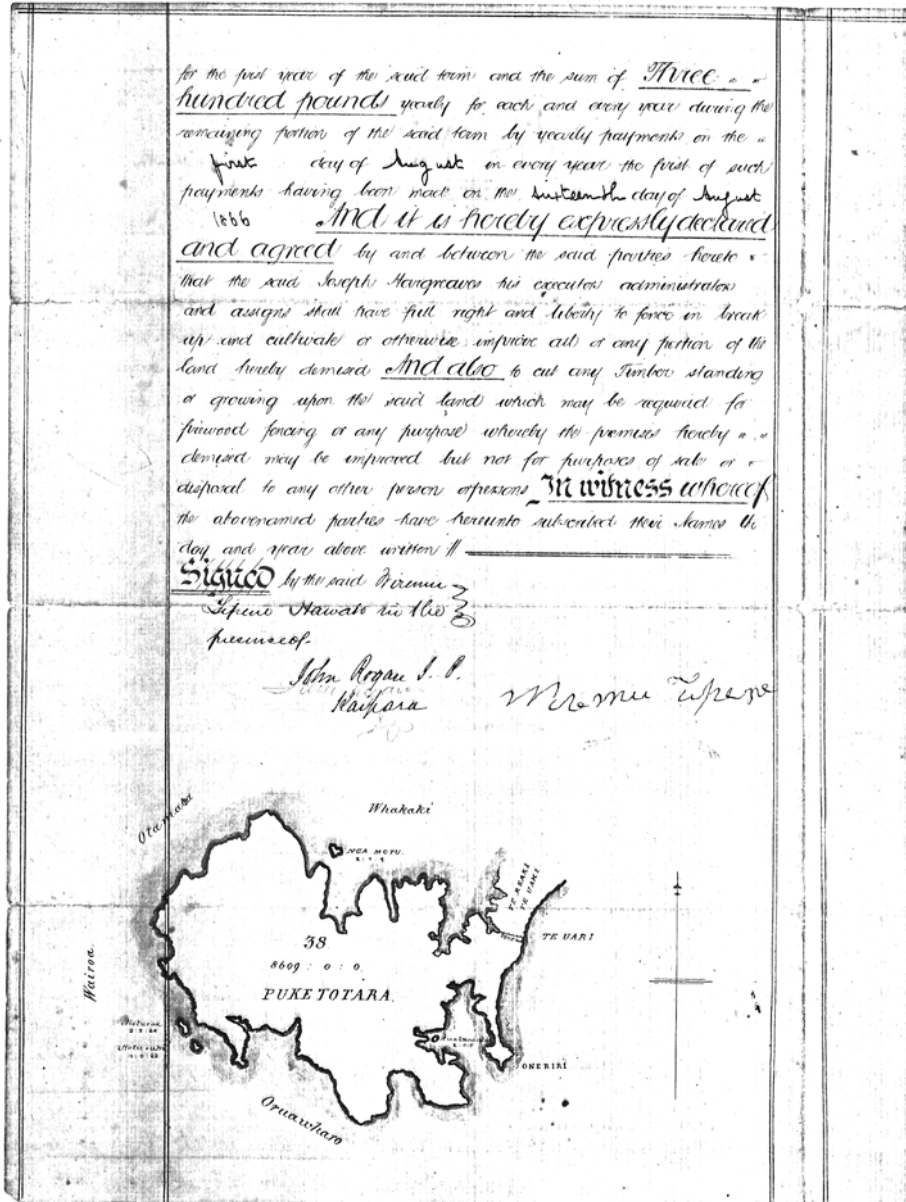 for the first year of the said term and the sum of Three " "
hundred pounds yearly for each and every year during the
remaining portion of the said term by yearly payments on the "
first day of August in every year the first of such
payments having been made on the sixteenth day of August
1866 And it is hereby expressly declared
and agreed by and between the said parties hereto "
that the said Joseph Hargreaves his executors administrators
and assigns shall have full right and liberty to fence in break
up and cultivate or otherwise improve all or any portion of the
land hereby demised And also to cut any Timber standing
or growing upon the said land which may be required for
firewood fencing or any purpose whereby the premises hereby " "
demised may be improved but not for purposes of sale or "
disposal to any other person or persons In witness whereof
the abovenamed parties have hereunto subscribed their Names the
day and year above written //
Signed by the said Wiremu
Tipene Hawato in the
presence of
John Rogan J. P.
Kaipara
Wiremu Tipene
Otamatea
Whakaki
NGA MOTU.
TE REAKI
TE UAKI
TE UARI
38
8609 : 0 : 0
PUKETOTARA.
Wairoa
ONERIRI
Oruawharo